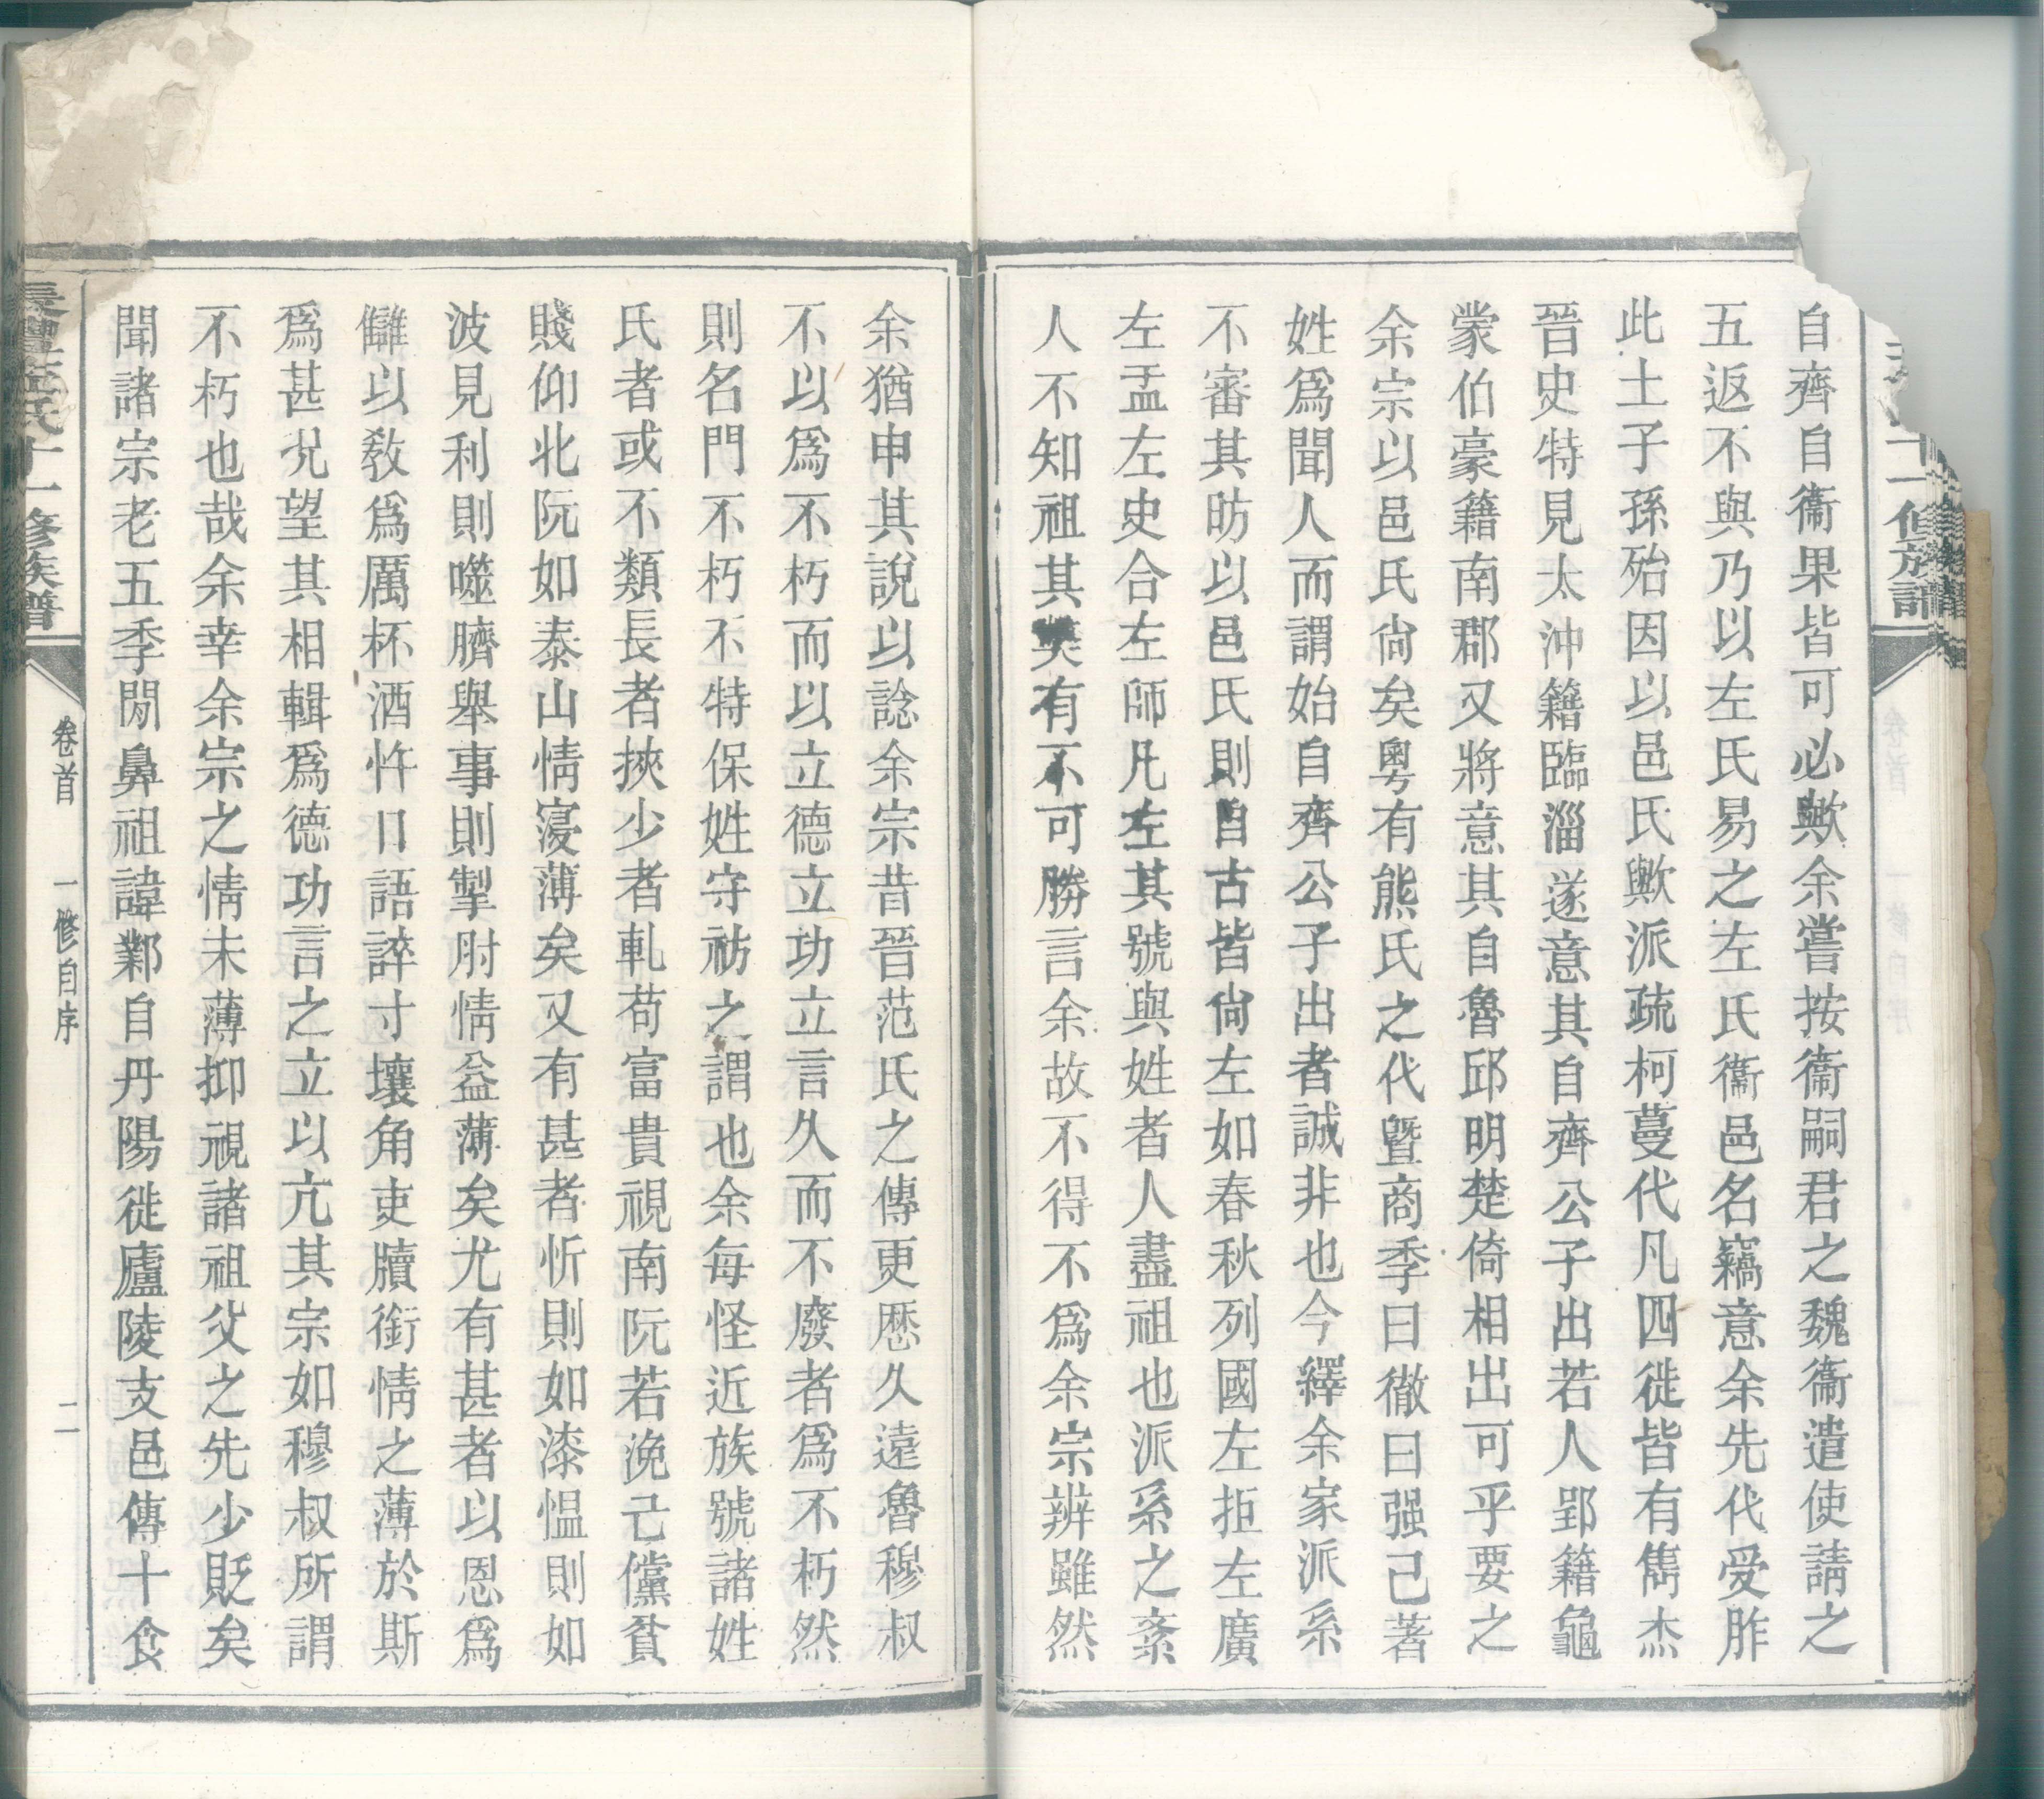 自齊自衞果皆可必歟余嘗按衞嗣君之魏衞遣使請之
五返不與乃以左氏易之左氏衞邑名竊意余先代受胙
此土子孫殆因以邑氏歟派疏柯蔓代凡四徙皆有雋杰
晉史特見太沖籍臨淄遂意其自齊公子出若人郢籍龜
蒙伯豪籍南郡又將意其自魯邱明楚倚相出可乎要之
余宗以邑氏尙矣粵有熊氏之代曁商季曰徹曰强己著
姓爲聞人而謂始自齊公子出者誠非也今繹余家派系
不審其昉以邑氏則自古皆尙左如春秋列國左拒左廣
左盂左史合左師凡左其號與姓者人盡祖也派系之紊
人不知祖其有不可勝言余故不得不爲余宗辨雖然
余猶申其說以諗余宗昔晉范氏之傳更歷久遠魯穆叔
不以爲不朽而以立德立功立言久而不廢者爲不朽然
則名門不朽不特保姓守祊之謂也余每怪近族號諸姓
氏者或不類長者挾少者軋苟富貴視南阮若浼己儻貧
賤仰北阮如泰山情寖薄矣又有甚者忻則如漆慍則如
波見利則噬臍舉事則掣肘情益薄矣尤有甚者以恩爲
讎以敎爲厲杯酒忤口語誶寸壤角吏牘銜情之薄於斯
爲甚況望其相輯爲德功言之立以亢其宗如穆叔所謂
不朽也哉余幸余宗之情未薄抑視諸祖父之先少貶矣
聞諸宗老五季閒鼻祖諱鄴自丹陽徙廬陵支邑傳十食
氏十一修族譜
卷首
一修自序
二
十一修族譜